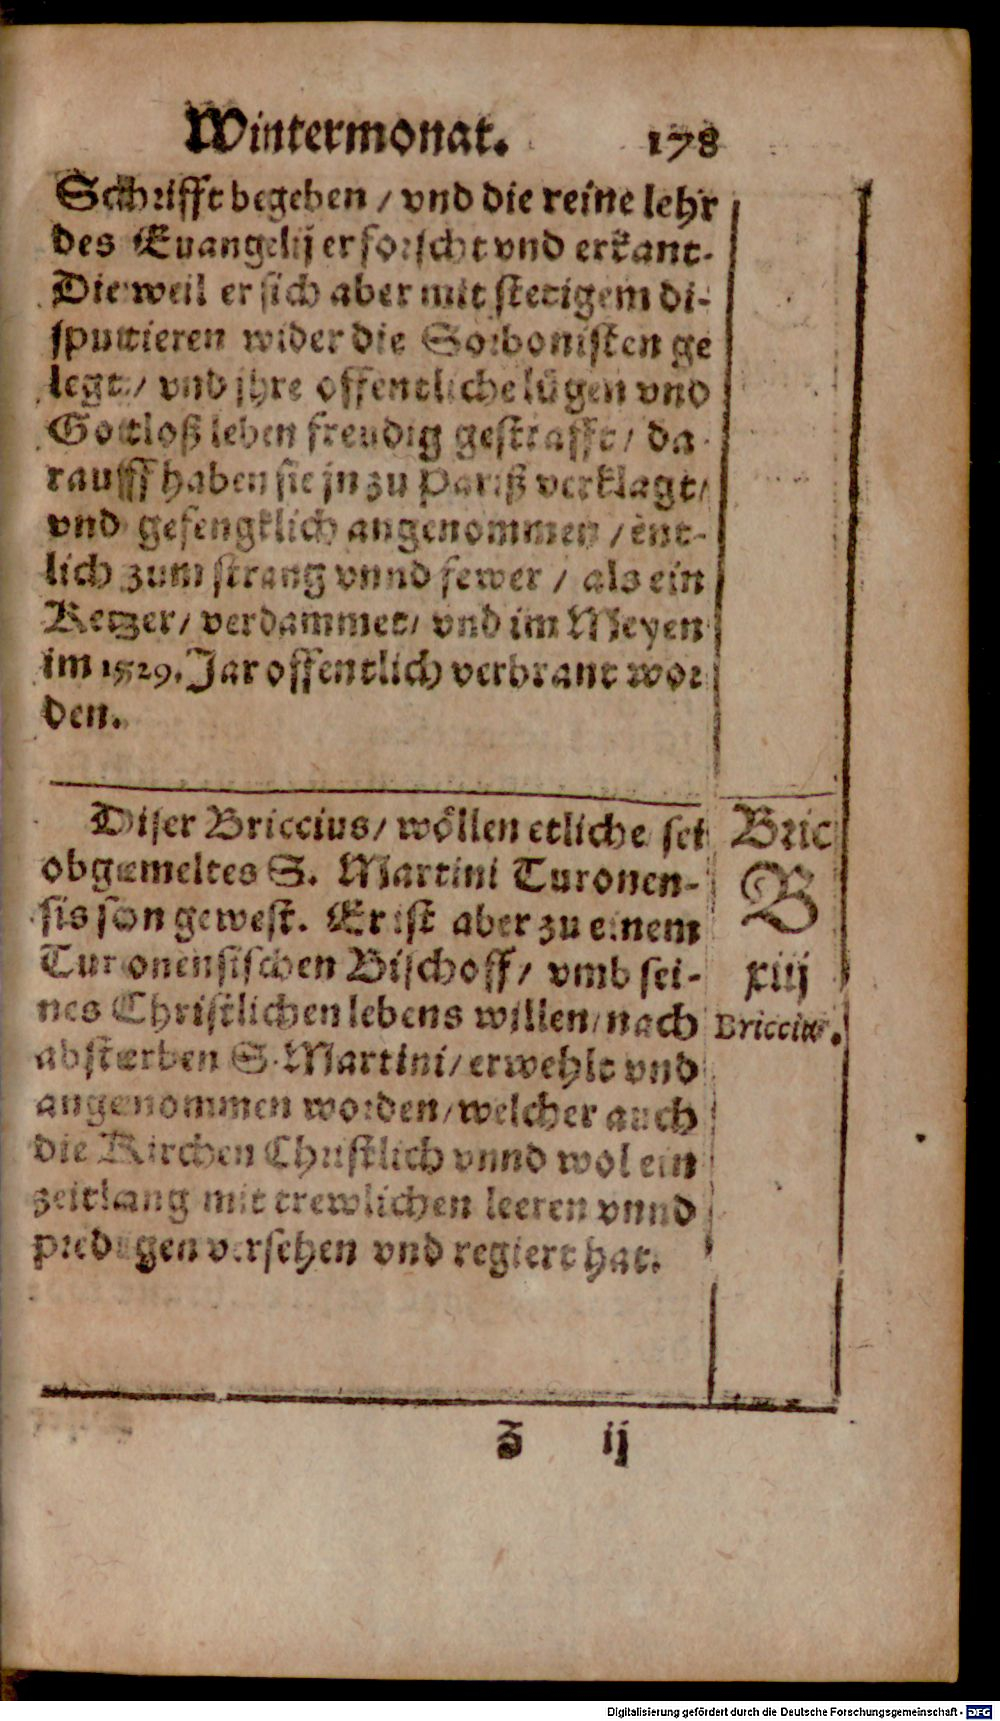 Wintermonat. 178
Schrifft begeben / vnd die reine lehr
des Euangelij erforscht vnd erkant.
Dieweil er sich aber mit stetigem di-
sputtieren wider die Sorbonisten ge
legt / vnd jhre offentliche lügen vnd
Gottloß leben freudig gestrafft / da
rauff haben sie jn zu Pariß verklagt /
vnd gefengklich angenommen / ent-
lich zum strang vnnd fewer / als ein
Ketzer / verdammet / vnd im Meyen
im 1529. Jar offentlich verbrant wor
den.
Diser Briccius / wöllen etliche sei
obgemeltes S. Martini Turonen-
sis son gewest. Er ist aber zu einem
Turonensischen Bischoff / vmb sei-
nes Christlichen lebens willen / nach
absterben S. Martini / erwehlt vnd
angenommen worden / welcher auch
die Kirchen Christlich vnnd wol ein
zeitlang mit trewlichen leeren vnnd
predigen versehen vnd regiert hat.
Bric
B
xiij
Briccius.
Z ij
Digitalisierung gefördert durch die Deutsche Forschungsgemeinschaft - DFG